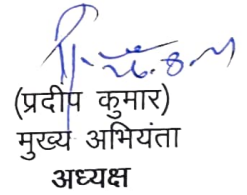 26.8.
(प्रदीप कुमार)
मुख्य अभियंता
अध्यक्ष